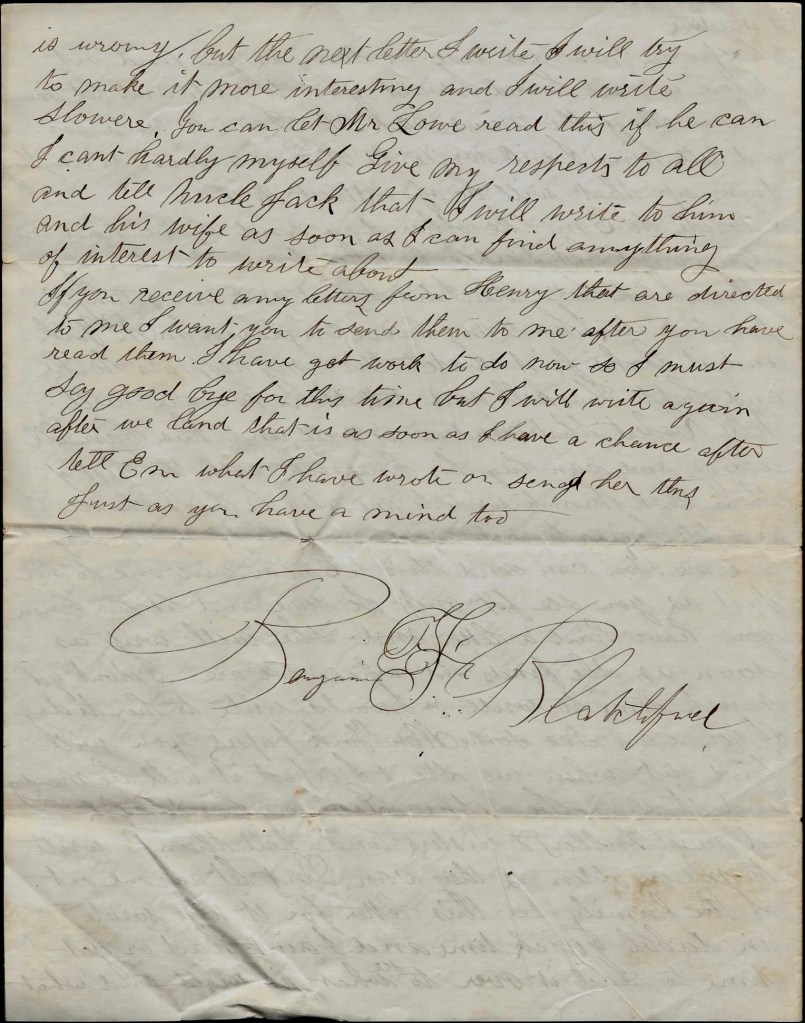 is wrong. but the next letter I write I will try
to make it more interesting and I will write
slowere. You can let Mr Lowe read this if he can
I cant hardly myself Give my respects to all
and tell Uncle Jack that I will write to him
and his wife as soon as I can find anything
of interest to write about
If you receive any letters from Henry that are directed
to me I want you to send them to me after you have
read them. I have got work to do now so I must
say good bye for this time but I will write again
after we land that is as soon as I have a chance after
tell Em what I have wrote or send her this
Just as you have a mind too
Benjamin F.